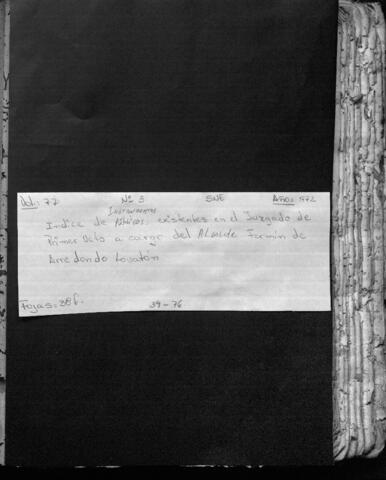 Vol: 77 Nº 3 SNE Año: 1972
Instrumentos
Indice de Públicos, existentes en el Juzgado de
Primer Voto a cargo del Alcalde Fermín de
Arredondo Lovatón
Fojas: 38 f. 39-76